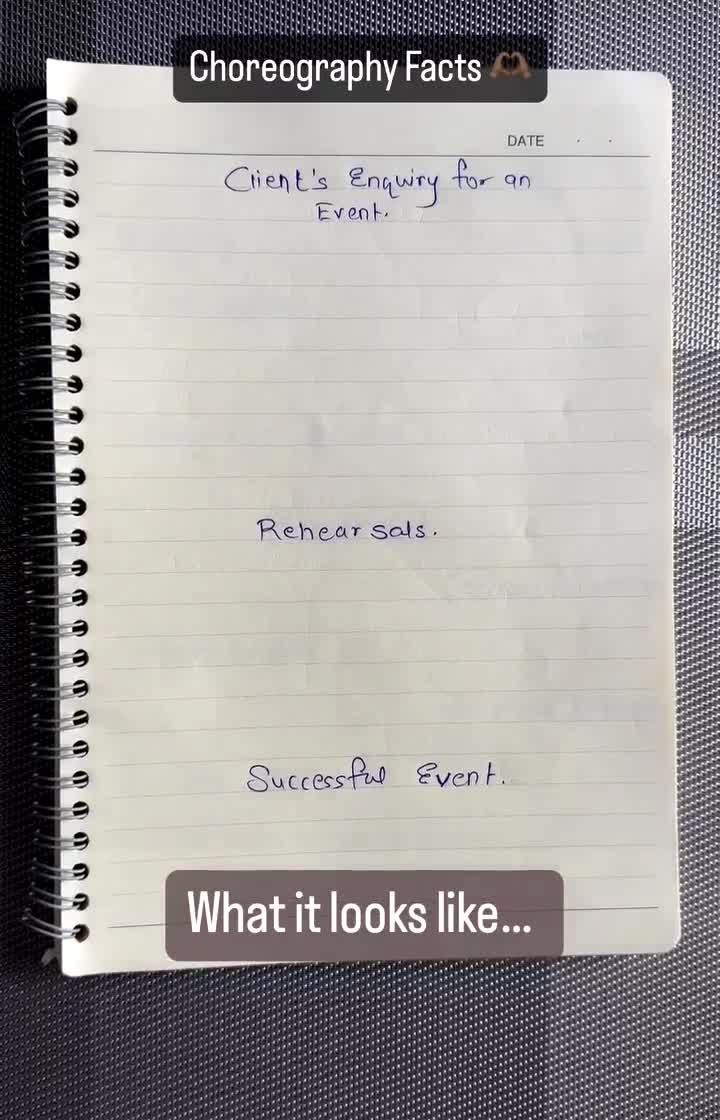 Choreography Facts 🫶🏾
DATE . .
Client's Enquiry for an
Event.
Rehearsals.
Successful Event.
What it looks like...